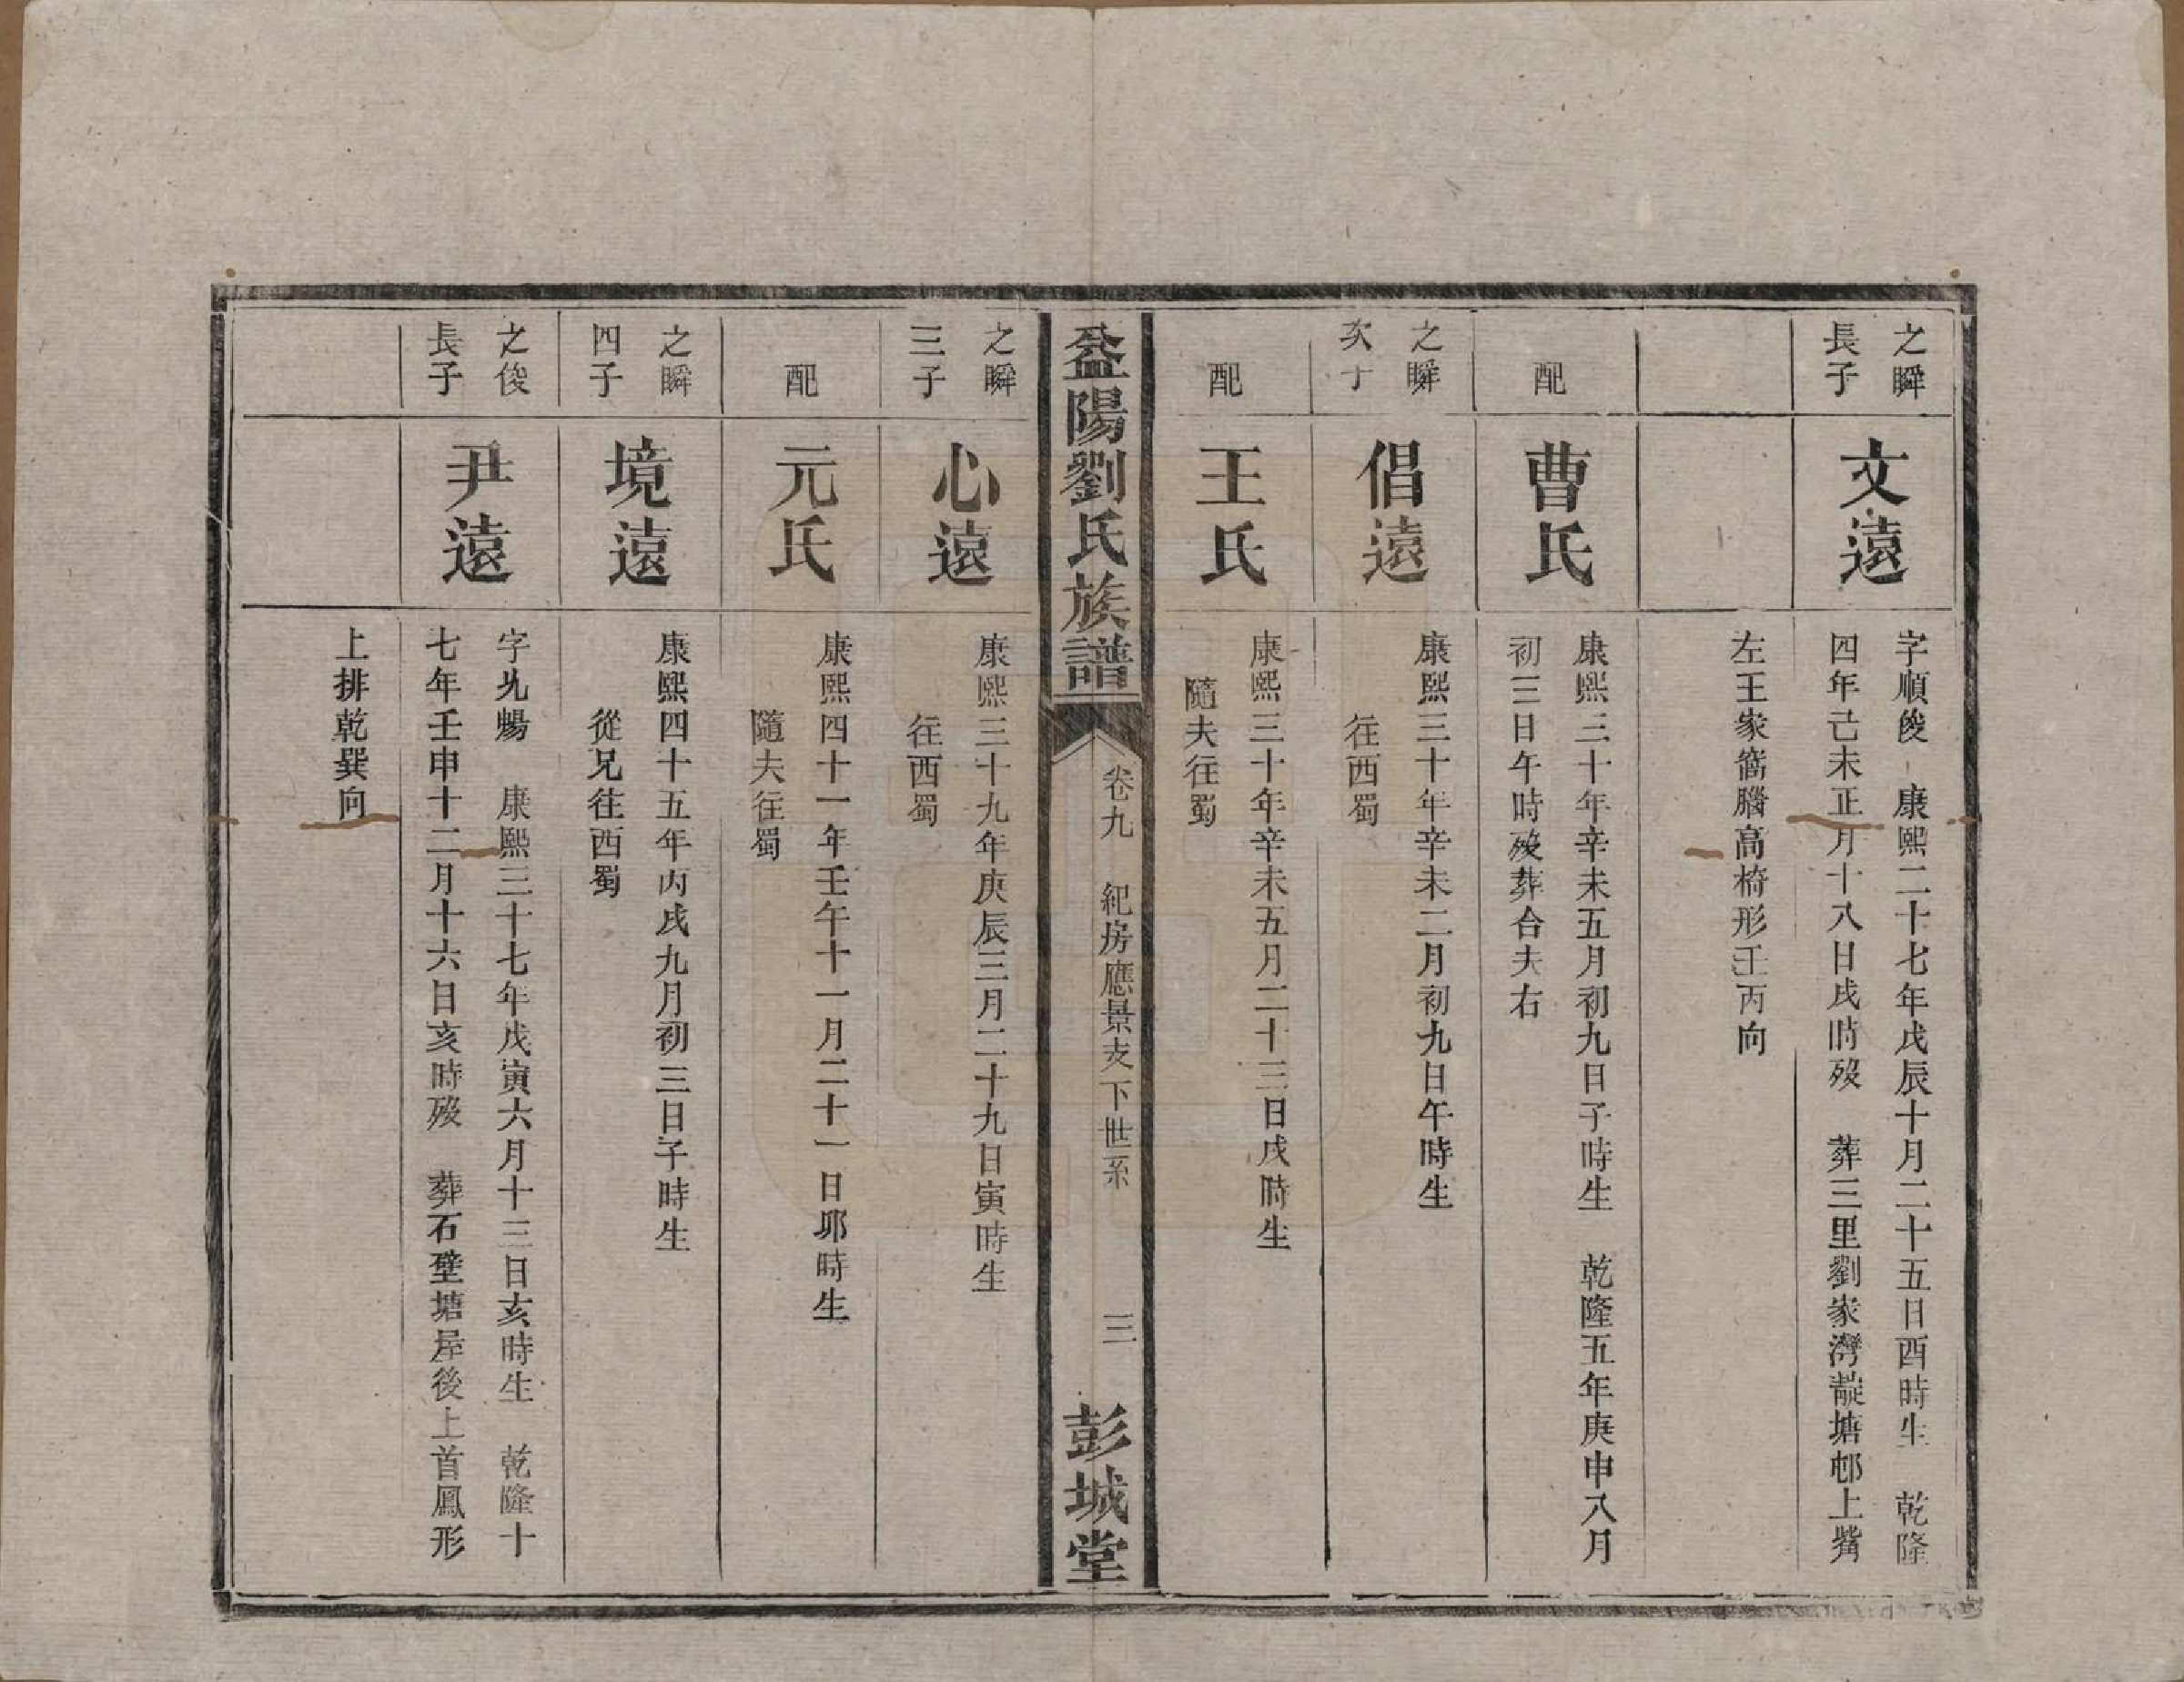 之瞬
長子
文遠
字順俊 康熙二十七年戊辰十月二十五日酉時生 乾隆
四年己未正月十八日戌時歿 葬三里劉家灣塘邨上觜
左王家嵛腦高椅形壬丙向
配
曹氏
康熙三十年辛未五月初九日子時生 乾隆五年庚申八月
初三日午時歿葬合夫右
之瞬
次子
倡遠
康熙三十年辛未二月初九日午時生
往西蜀
配
王氏
康熙三十年辛未五月二十三日戌時生
隨夫往蜀
益陽劉氏族譜
卷九 紀房應景支下世系
三
彭城堂
之瞬
三子
心遠
康熙三十九年庚辰三月二十九日寅時生
往西蜀
配
元氏
康熙四十一年壬午十一月二十一日夘時生
隨夫往蜀
之瞬
四子
境遠
康熙四十五年丙戌九月初三日子時生
從兄往西蜀
之俊
長子
尹遠
字允暢 康熙三十七年戊寅六月十三日亥時生 乾隆十
七年壬申十二月十六日亥時歿 葬石壁塘屋後上首鳳形
上排乾巽向